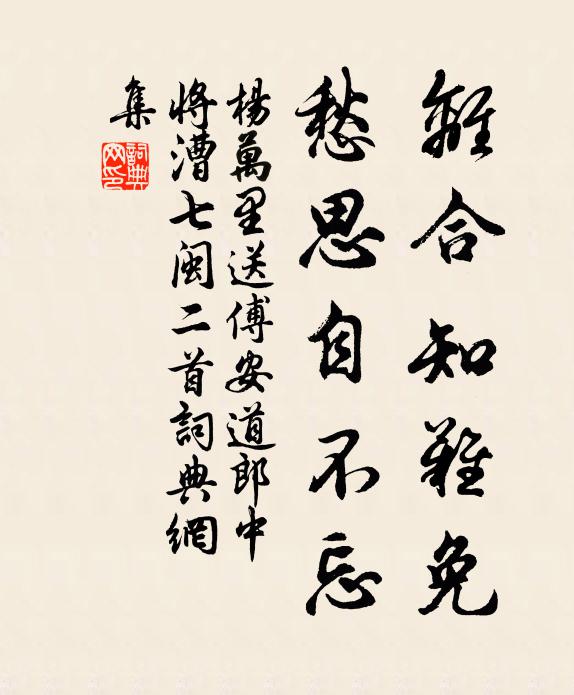 離合知難免
愁思自不忘
楊萬里送傅安道郎中
將漕七閩二首詞典網
集
詞典
网印